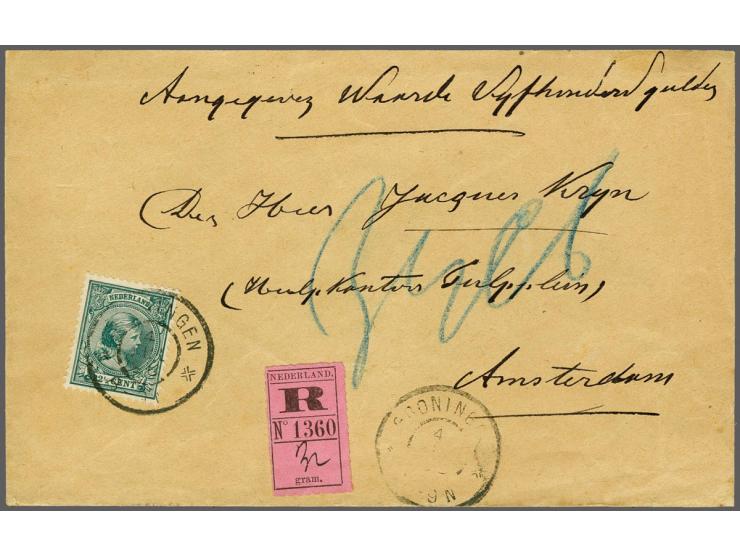 Aangegeven Waarde Vyfhonderd gulden
Den Heer Jacques Kryn
(Hulpkantoor Tulpplein)
Amsterdam
NEDERLAND
CENT
NGEN
NEDERLAND.
R
No 1360
gram.
GRONING
4